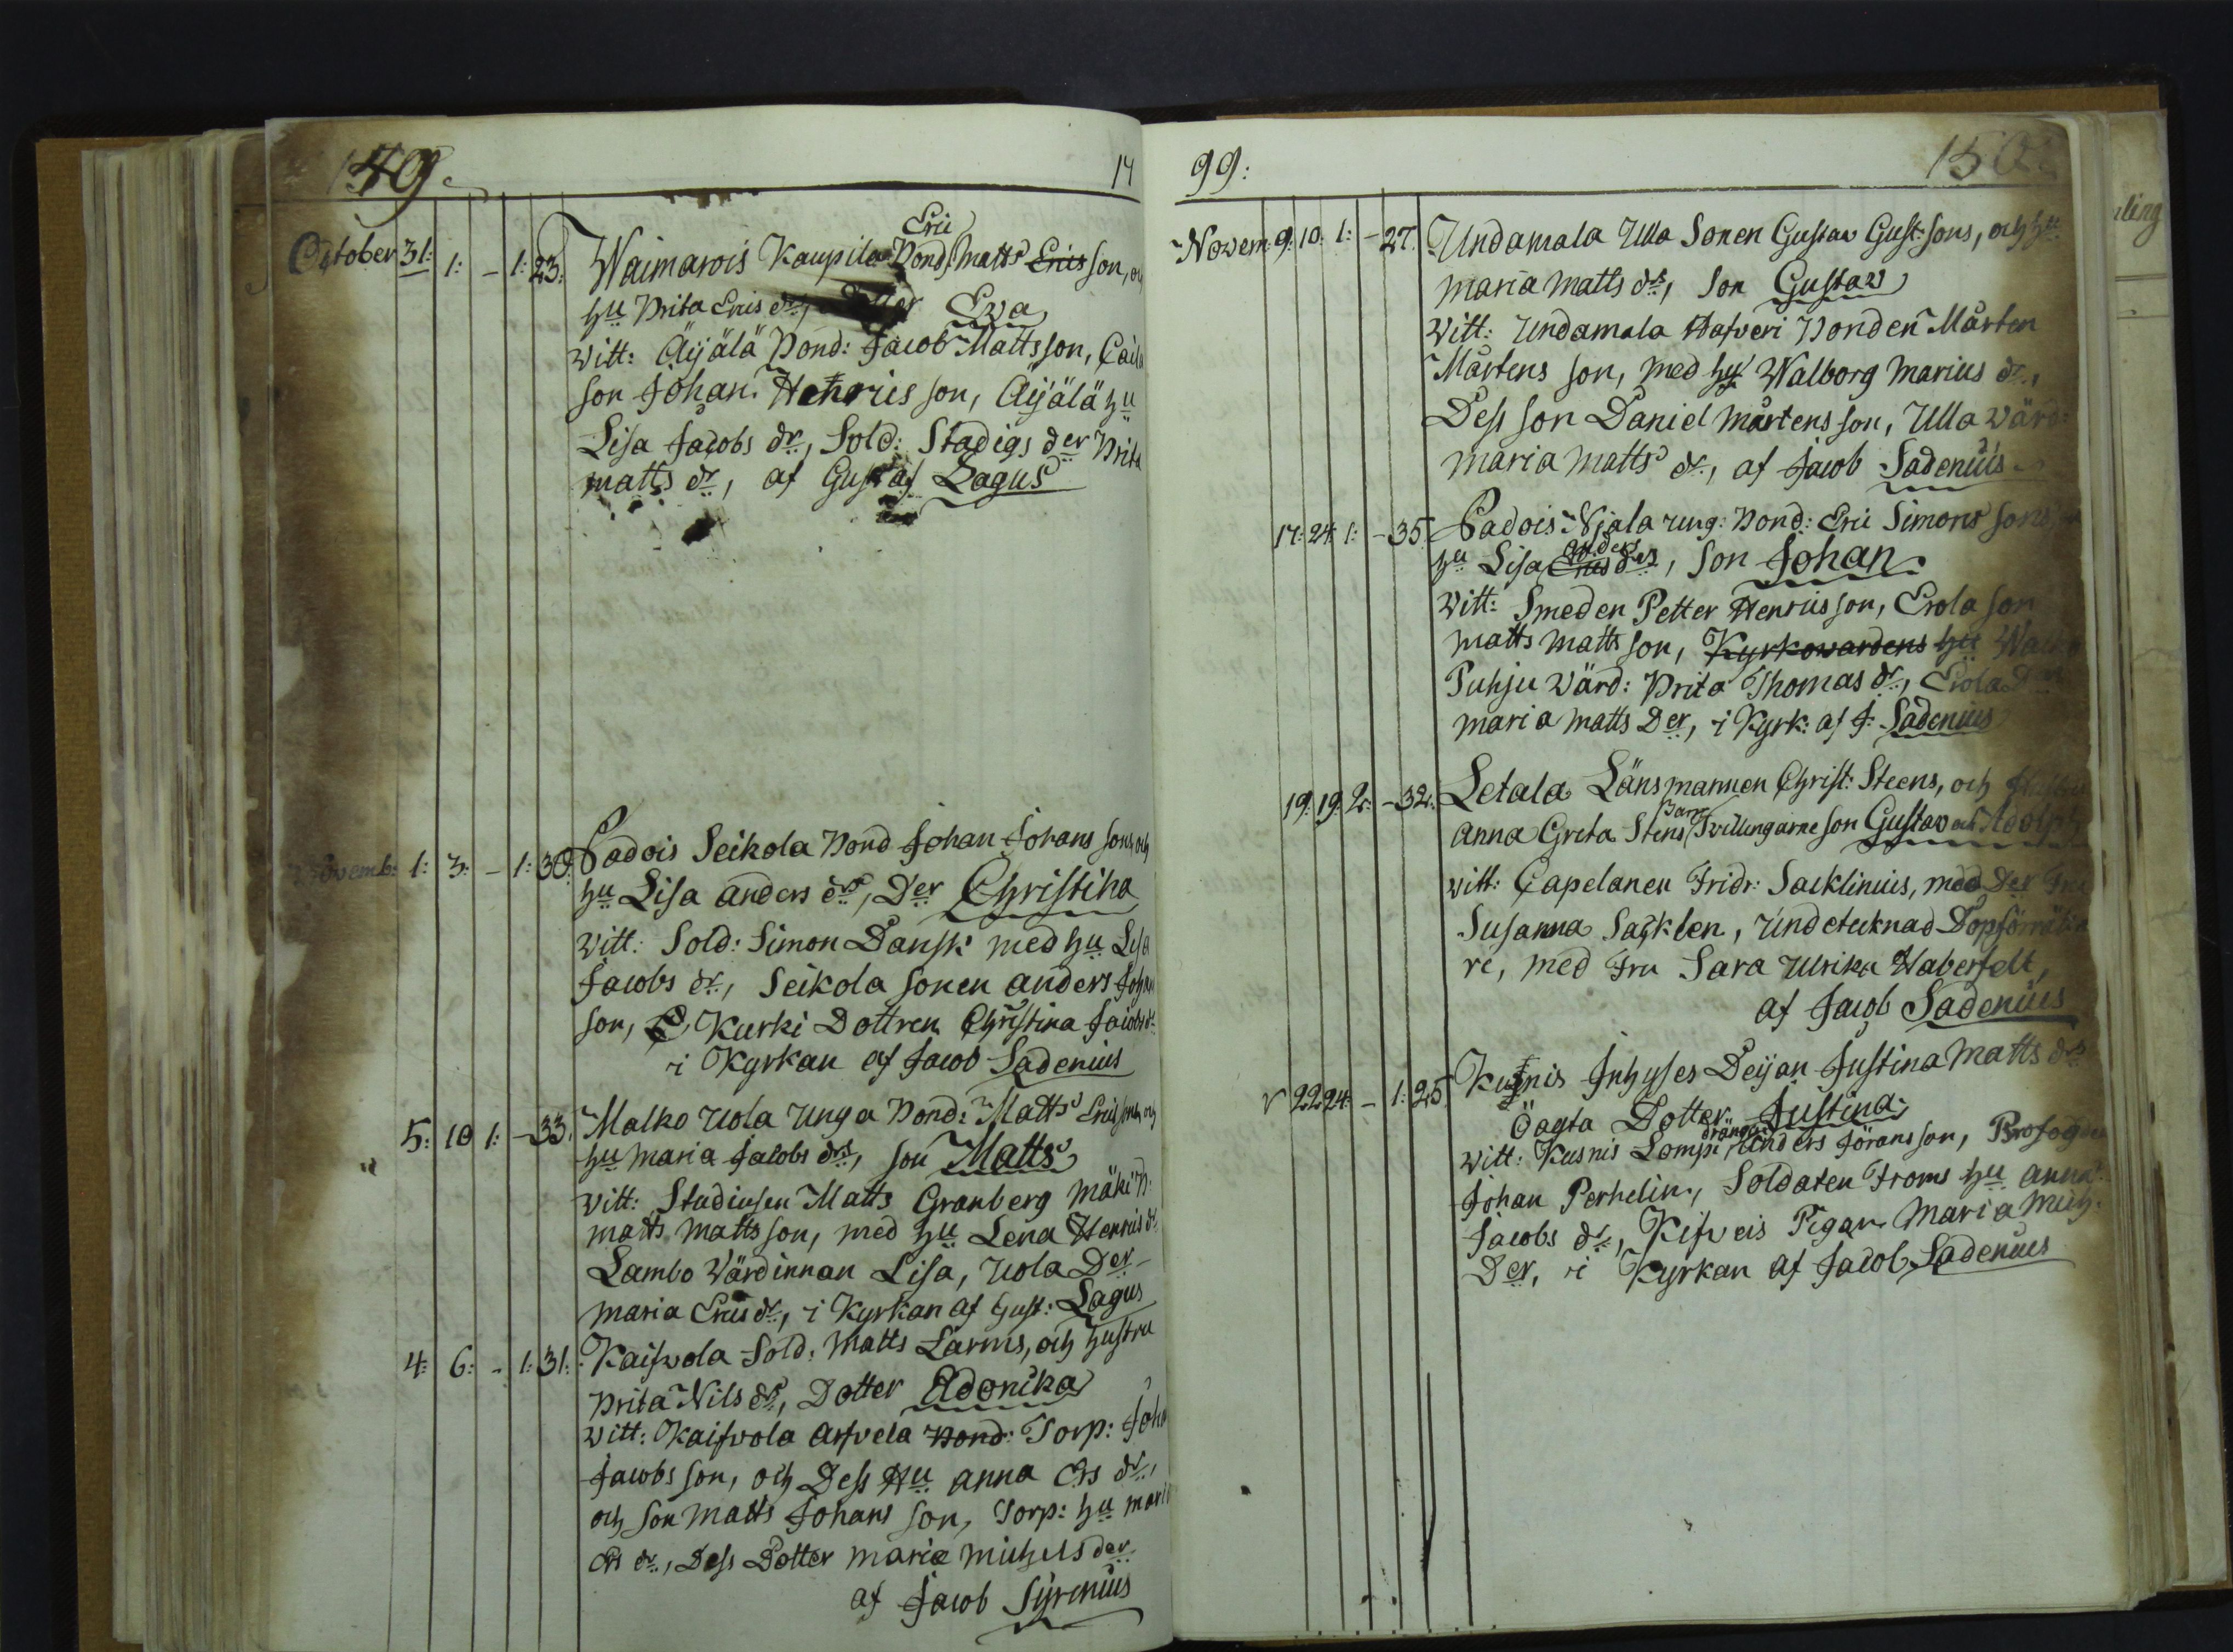 149.
14
October 31: 1: - 1: 23: Waimarois Kaupila Bond: Matts Erics son, och
Eric
hu Brita Erics dr, Dotter Ewa
witt: Äijälä Bond: Jacob Mattsson, Caisa
son Johan Henrics son, Äijälä hu
Lisa Jacobs dr, Sold: Stadigs der Brita
matts dr, af Gustaf Lagus
Novemb: 1: 3: - 1: 30. Padois Seikola Bond Johan Johans sons, och
hu Lisa anders dr, Der Christina
witt: Sold: Simon Dansk med hu Lisa
Jacobs dr, Seikola sonen anders Johan
son, Kurki Dottren Christina Jacobs dr
i Kyrkan af Jacob Sadenius
5: 10 1: - 33. Malko Uola Unga Bond: Matts Ericsons, och
hu Maria Jacobs dr, son Matts
witt: Studiosen Matts Granberg Mäki B:
matts mattsson, med hu Lena Henrics dr
Lambo Wärdinnan Lisa, Uola Der
maria Erics dr, i Kyrkan af Gust: Lagus
4: 6: - 1: 31: Kaifvola Sold: Matts Larms, och hustru
Brita Nils dr, Dotter Edonika
witt: Kaifvola Arfvela Bond: Torp: Joha
Jacobs son, och Dess Hu anna Ers dr,
och son Matts Johans son, Torp: hu mari
Ers dr, Dess Dotter maria michels der
af Jacob Syrenius
99:
150.
Novem: 9: 10: 1: - 27. Undamala Ulla Sonen Gustav Gust:sons, och hu
maria matts dr, son Gustaw
witt: Undamala Hafveri Bonden Mårten
Mårtens son, med hu Walborg Marius dr,
Dess son Daniel Mårtens son, Ulla wärd:
maria matts dr, af Jacob Sadenius
17: 24: 1: - 35. Padois Njala ung: Bond: Eric Simons sons
anders
hu Lisa Erics drs, son Johan
witt: Smeden Petter Henricsson, Erola son
matts matts son, Kyrkowardens hu
Puhju Wärd: Brita Thomas dr, Erola D
maria matts Der, i Kyrk: af J: Sadenius
19. 19. 2: - 32. Letala Länsmannen Christ: Steens, och Hustru
Barn
anna Greta Stens, Tvillingarne son Gustav ad Adolph
witt: Capelanen Fridr: Sacklinius, med Des Fru
Susanna Sacklen, Undetecknad Dopförrätta
re, med Fru Sara Ulrika Waberfelt,
af Jacob Sadenius
v 22 24: - 1: 25. Kusnis Inhyses Deijan Justina Matts dr
Öägta Dotter Justina
drängen
witt: Kusnis Lompi Anders Jöransson, Profogden
Johan Perhelin, Soldaten Froms hu anna
Jacobs dr, Kifveis Pigan Maria Mich:
Der, i Kyrkan af Jacob Sadenius